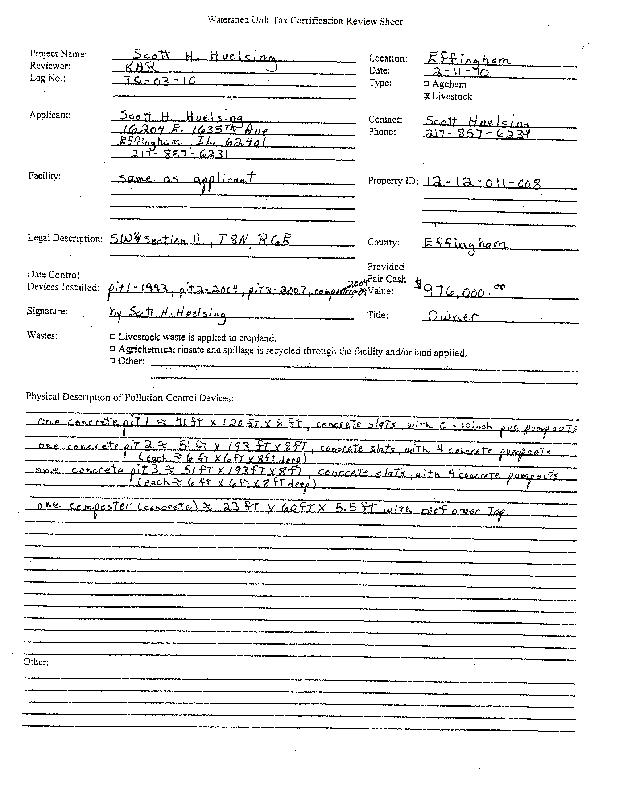 Watershed Unit Tax Certification Review Sheet
Project Name: Scott H. Huelsing Location: Effingham
Reviewer: KAR Date: 2-11-
Log No.: -03-10 Type: □ Agchem
☒ Livestock
Applicant: Scott H. Huelsing Contact: Scott Huelsing
16204 E. 1635th Ave Phone: 217-857-
Effingham, IL 62401
217-857-6231
Facility: same as applicant Property ID: 12-12-011-008
Legal Description: SW¼ Section 11, T8N, R6E County: Effingham
Date Control Provided
Devices Installed: pit1-1993, pit2-2004, pit3-2007, Fair Cash Value: $976,000.00
Signature: by Scott H. Huelsing Title: Owner
Wastes: □ Livestock waste is applied to cropland.
□ Agrichemical rinsate and spillage is recycled through the facility and/or land applied.
□ Other:
Physical Description of Pollution Control Devices:
one concrete pit 1 ≈ 41 ft x 120 ft x 8 ft, concrete slats, with 6 - 10inch pvc pumpouts
one concrete pit 2 ≈ 51 ft x 193 ft x 8ft, concrete slats, with 4 concrete pumpouts
(each ≈ 6 ft x 6ft x 8ft deep)
one concrete pit 3 ≈ 51ft x 193ft x 8ft concrete slats, with 4 concrete pumpouts
(each ≈ 6 ft x 6 ft x 8 ft deep)
one composter (concrete) ≈ 23 ft x 60ft x 5.5 ft with roof over top
Other: